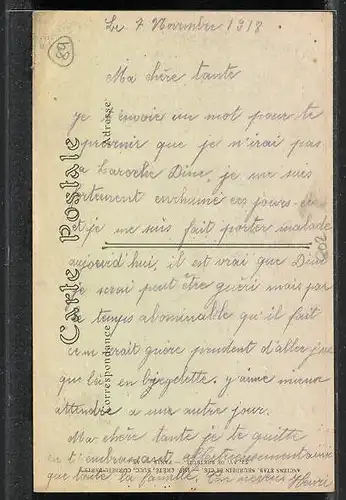 68
Le 7 Novembre 1918
Ma chère tante
je t'envoie un mot pour te
prévenir que je n'irai pas
a Laroche Dim. je me suis
fortement enrhumé ces jours-ci
et je me suis fait porter malade
aujourd'hui, il est vrai que Dim
je serai peut être guéri mais par
le temps abominable qu'il fait
ce ne serait guère prudent d'aller jus
que là en byciclette. j'aime mieux
attendre a un autre jour.
Ma chère tante je te quitte
en t'embrassant affectueusement ainsi
que toute la famille. Ton neveu Henri
Carte Postale
Correspondance
Adresse